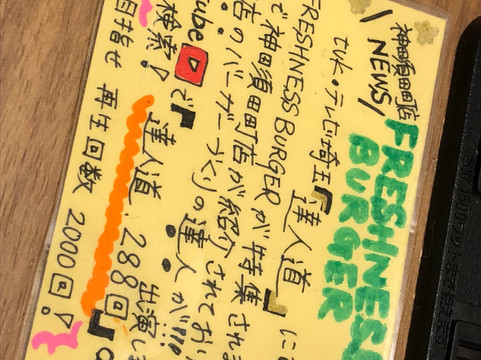 神田須田町店
NEWS/
FRESHNESS
BURGER
テレ玉・テレビ埼玉『達人道』に
FRESHNESS BURGERが特集され
で神田須田町店が紹介されており
店のバーガーづくりの達人が!!!
ube で『達人道 288回』
出演し
検索!
目指せ 再生回数 2000回!